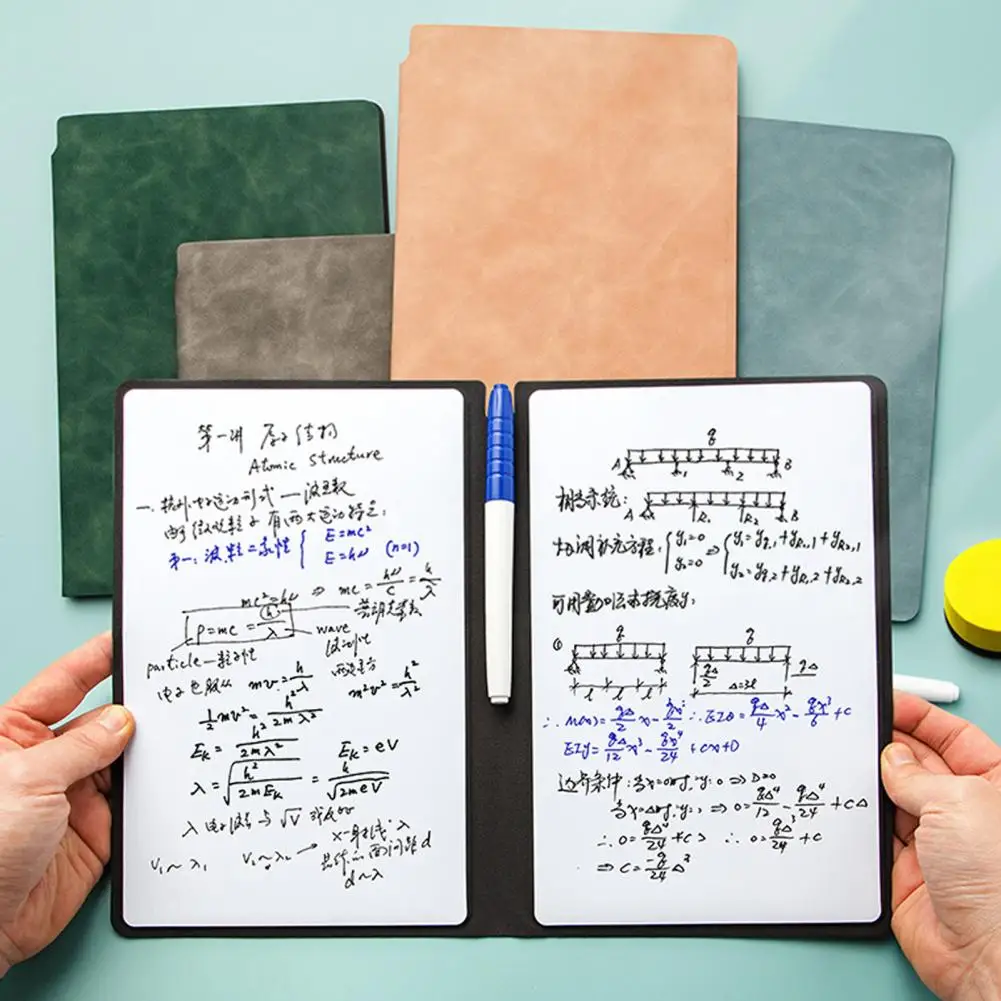 第一讲 原子结构
Atomic Structure
一、核外电子运动形式——波函数
由于微观粒子有两大运动特定:
第一:波粒二象性 { E=mc²
E=hν (n=1)
mc²=hν ⇒ mc = hν/c = h/λ
P=mc = h/λ
particle—粒子性
wave 波动性
电子也服从 mv = h/λ m²v² = h²/λ²
½mv² = h²/2mλ²
E_K = h²/2mλ² E_K = eV
λ = √(h²/2mE_K) = h/√(2meV)
λ 电子波长与 √V 成反比
V₁~λ₁ V₂~λ₂ → X-射线:λ
晶体的面间距d
d~λ
q
A 1 2 B
相当系统:
A R₁ R₂ B
协调补充方程: { y₁=0 y₂=0 ⇒ { y₁=y_q,1+y_R₁,1+y_R₂,1
y₂=y_q,2+y_R₁,2+y_R₂,2
可用叠加法求挠度y:
① q q
l l l qΔ/2 Δ=3l qΔ
∴ M(x)= qΔ/2 x - qx²/2 ∴ EIθ = qΔ/4 x² - qx³/6 + C
EIy = qΔ/12 x³ - qx⁴/24 + Cx+D
边界条件:当x=0时,y=0 ⇒ D=0
当x=Δ时,y=0 ⇒ 0= qΔ⁴/12 - qΔ⁴/24 + CΔ
∴ 0= qΔ⁴/24 + CΔ ∴ 0= qΔ³/24 + C
⇒ C = -q/24 Δ³